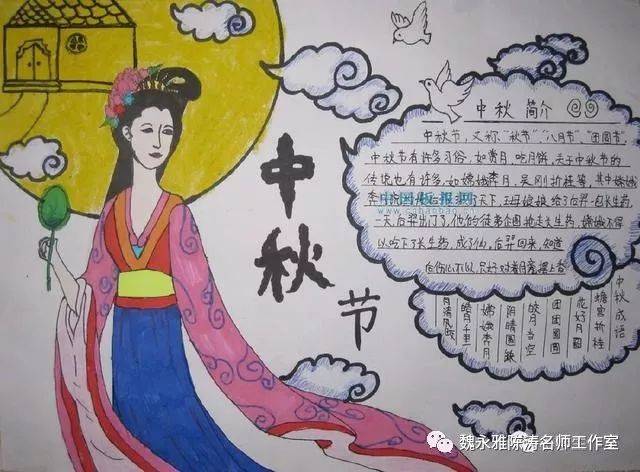 中秋节
中秋简介
中秋节，又称"秋节"、"八月节"、"团圆节"。
中秋节有许多习俗，如赏月、吃月饼，关于中秋节的
传说也有许多，如嫦娥奔月，吴刚折桂等，其中嫦娥
天下，王母娘娘给了后羿一包长生药，
一天，后羿出门了，他的徒弟
以吃下了长生药，成了仙，后羿回来，知道
中秋成语
蟾宫折桂
花好月圆
团团圆圆
皎月当空
阴晴圆缺
嫦娥奔月
皓月千里
月清风皎
中国板报网
魏永雅陈涛名师工作室